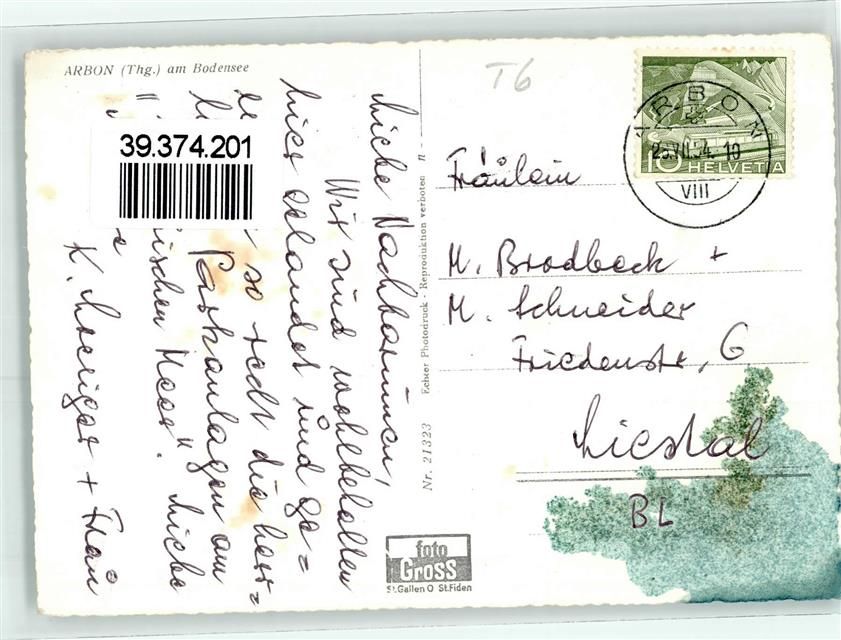 ARBON (Thg.) am Bodensee
39.374.201
Liebe Nachbarinnen,
Wir sind wohlbehalten
hier gelandet und ge=
so recht die herr=
Parkanlagen am
ischen Meer". Liebe
K. + Frau
Nr. 21323 Echter Photodruck - Reproduktion verboten
foto
Gross
St.Gallen O St.Fiden
T6
ARBON
VIII
10 HELVETIA
Fräulein
M. Brodbeck +
M. Schneider
Friedenstr. 6
Liestal
BL